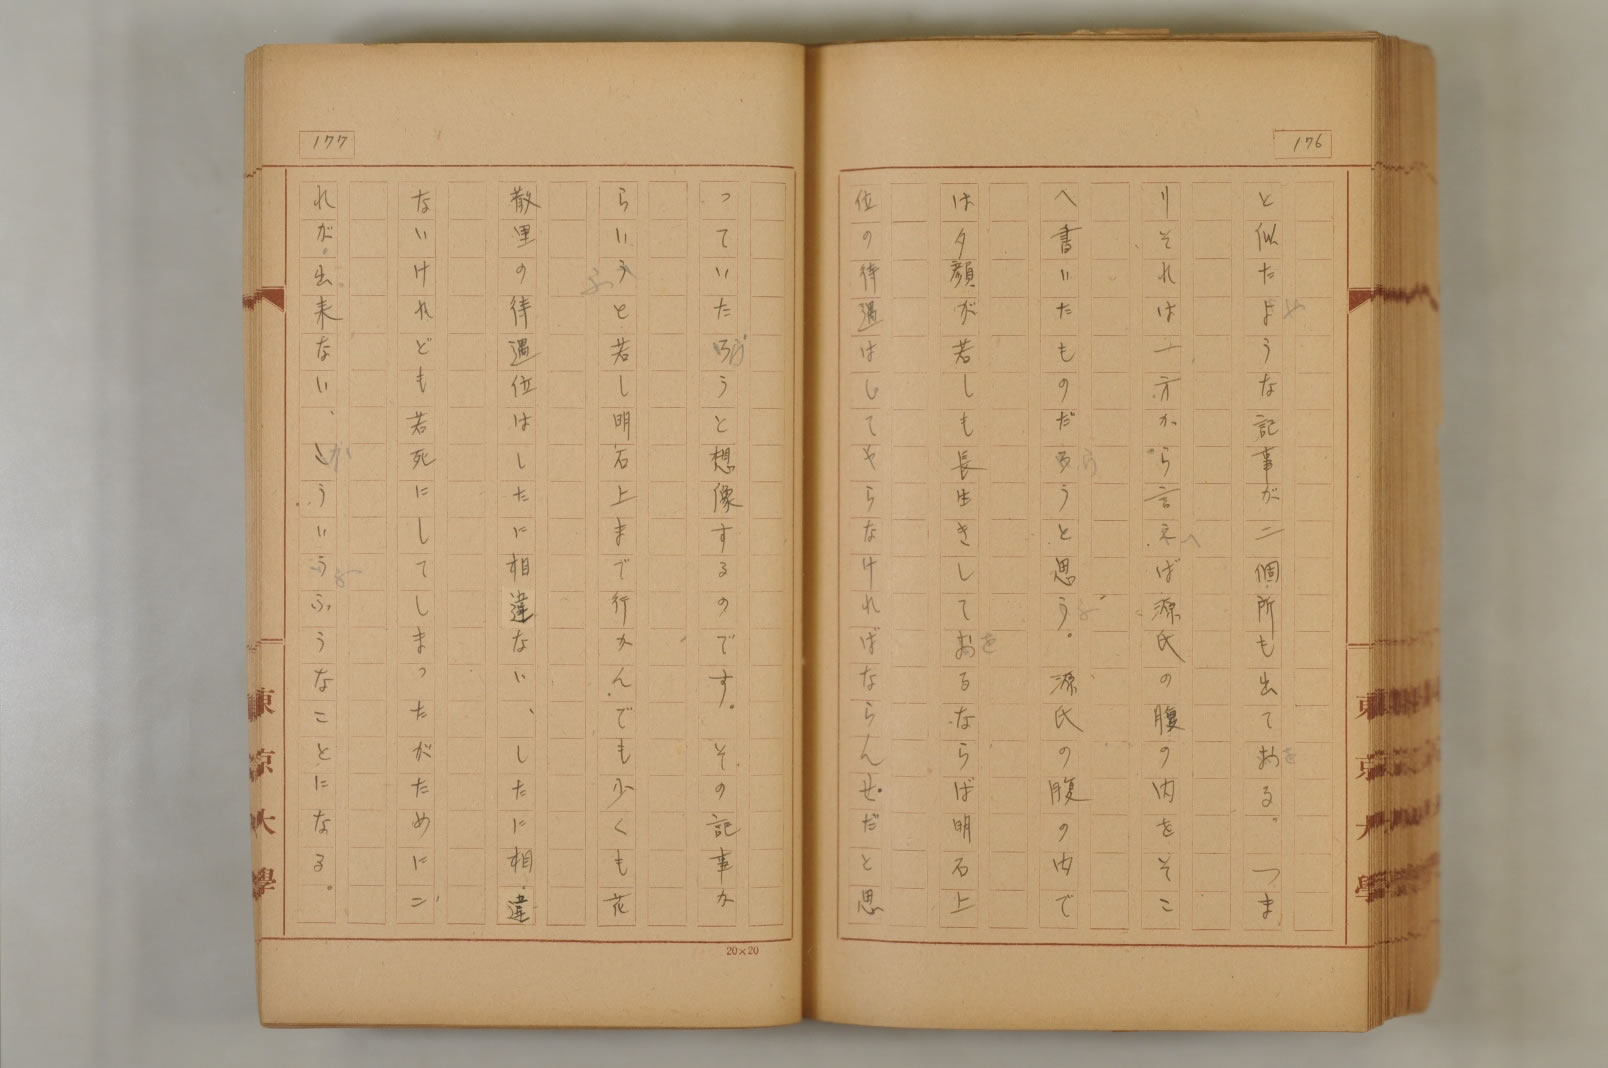 176
と似たような記事が二個所も出ておる。つま
りそれは一方から言えば源氏の腹の内をそこ
へ書いたものだろうと思う。源氏の腹の内で
は夕顔が若しも長生きしておるならば明石上
位の待遇はしてやらなければならんぜだと思
177
っていたろうと想像するのです。その記事か
らいうと若し明石上まで行かんでも少くも花
散里の待遇位はしたに相違ない、したに相違
ないけれども若死にしてしまったがためにこ
れが出来ない、こういうふうなことになる。
20×20
東京大學